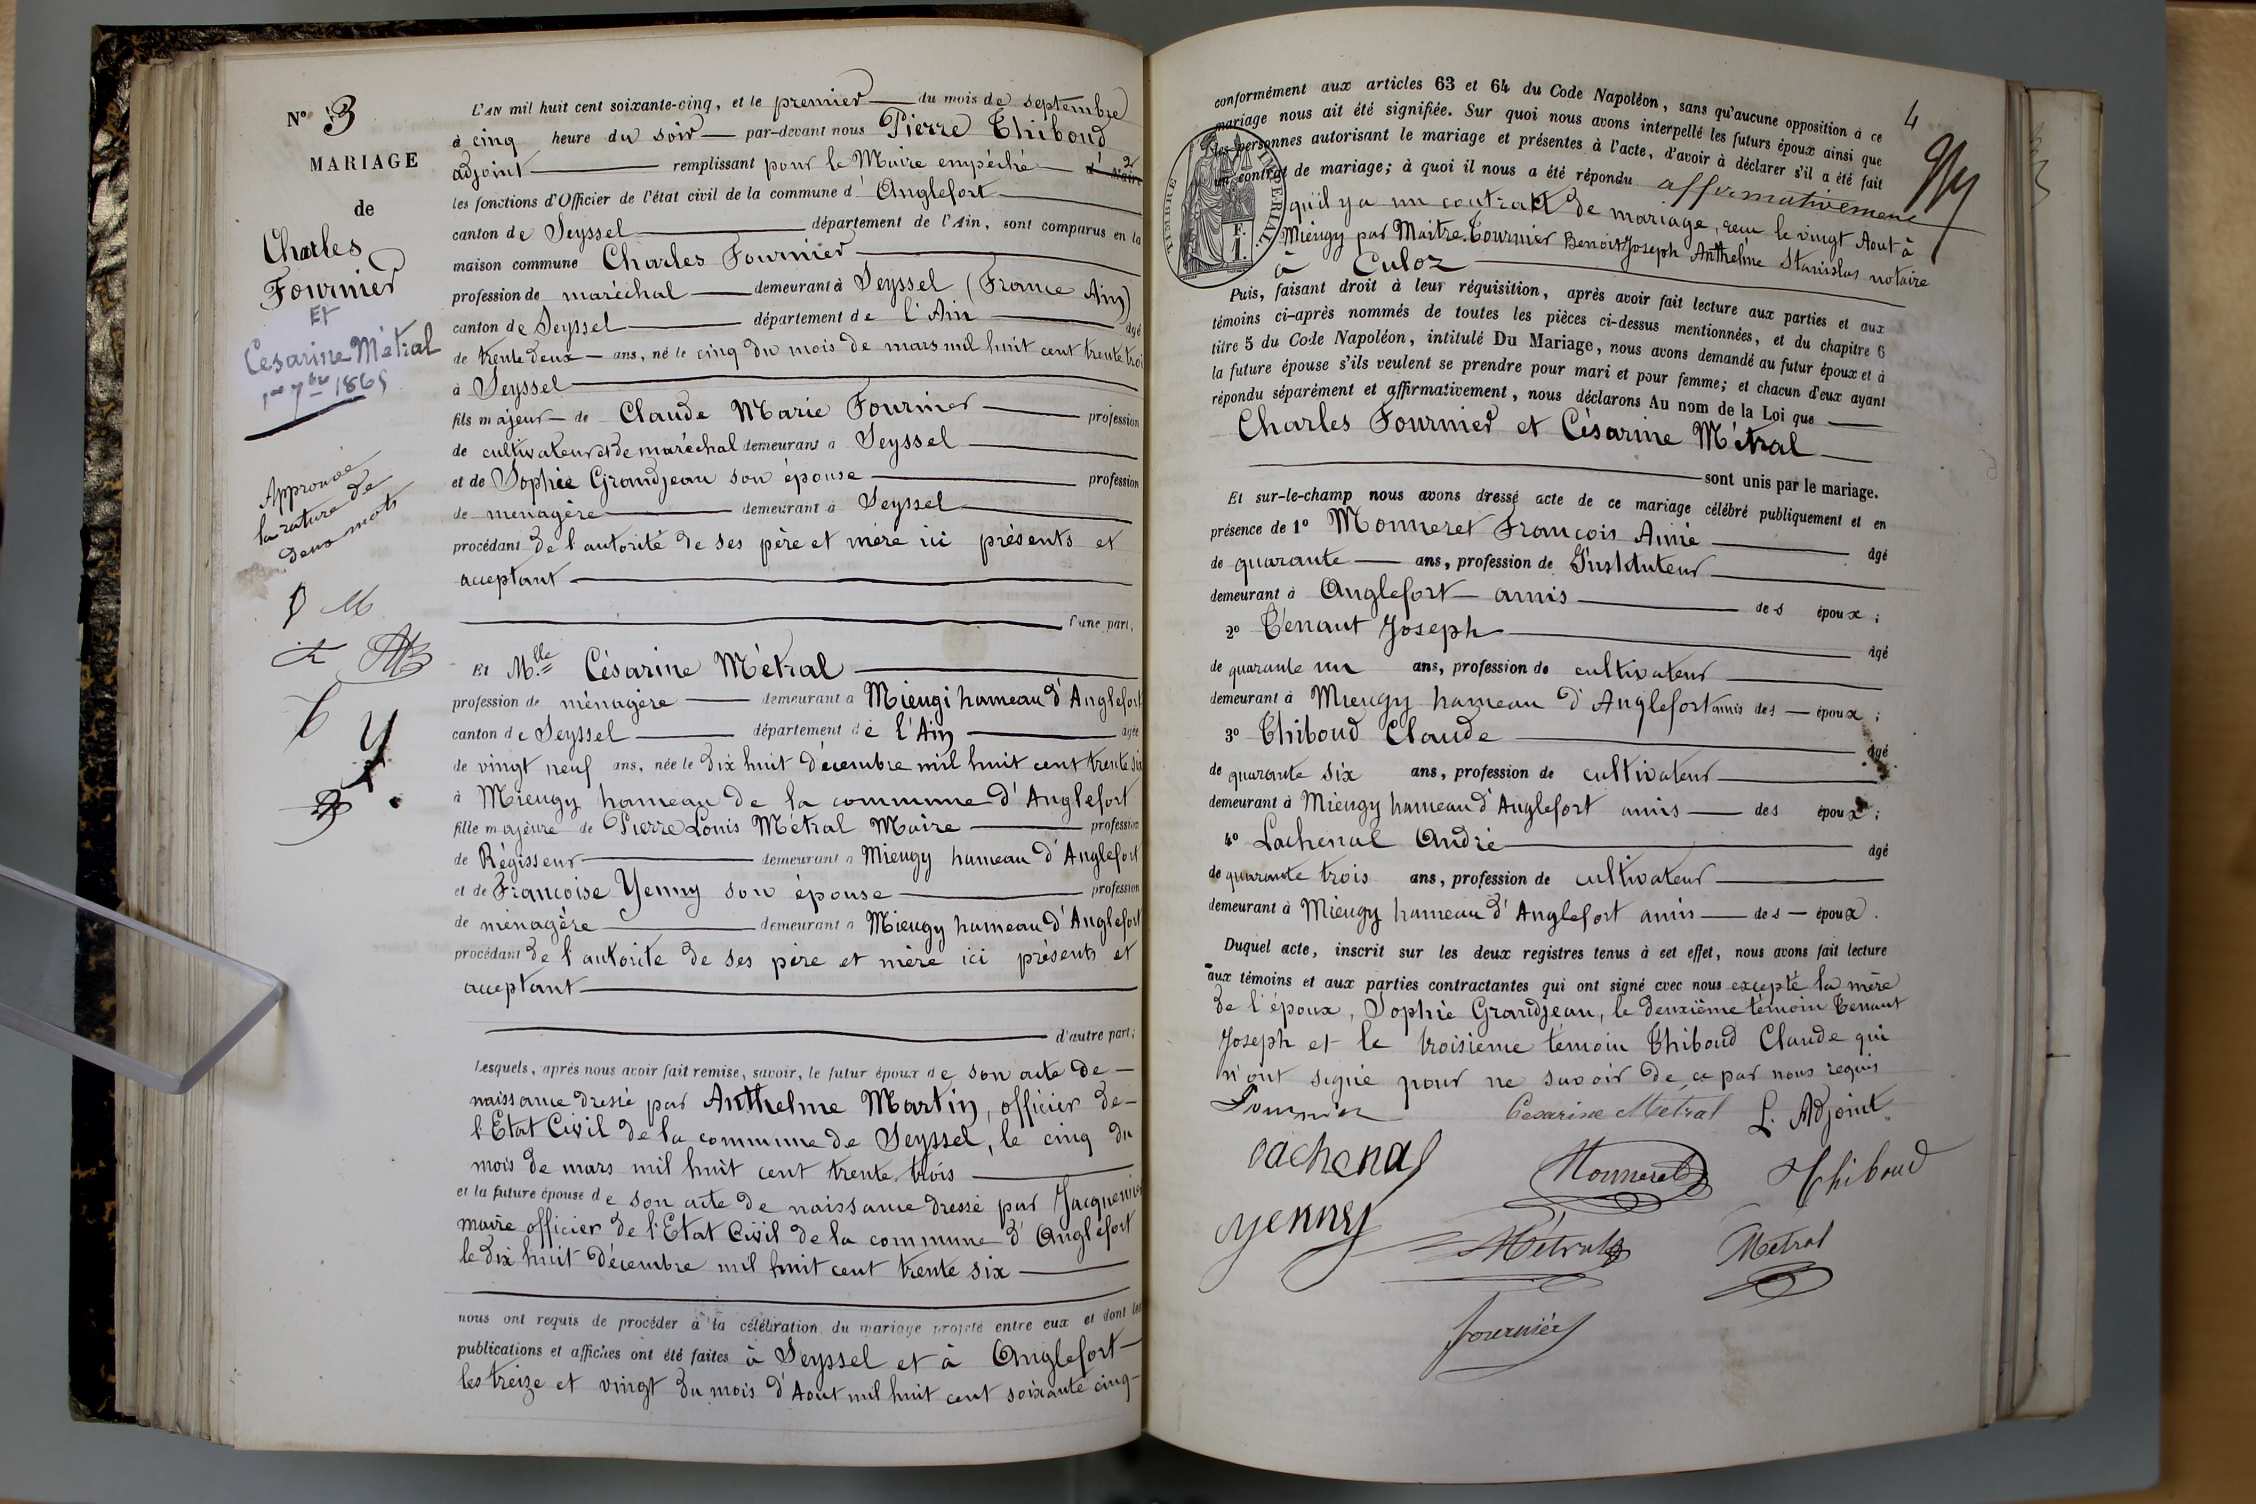 N° 3
MARIAGE
de
Charles
Fournier
Et
Césarine Métral
1er 7bre 1865
Approuvée
la rature de
deux mots
L'AN mil huit cent soixante-cinq, et le premier du mois de septembre
à cinq heure du soir par-devant nous Pierre Thiboud
adjoint remplissant pour le Maire empêché
les fonctions d'Officier de l'état civil de la commune d'Anglefort
canton de Seyssel département de l'Ain, sont comparus en la
maison commune Charles Fournier
profession de maréchal demeurant à Seyssel (France Ain)
canton de Seyssel département de l'Ain âgé
de trente deux ans, né le cinq du mois de mars mil huit cent trente trois
à Seyssel
fils majeur de Claude Marie Fournier profession
de cultivateur et de maréchal demeurant à Seyssel
et de Sophie Grandjean son épouse profession
de ménagère demeurant à Seyssel
procédant de l'autorité de ses père et mère ici présents et
acceptant
d'une part,
Et Mlle Césarine Métral
profession de ménagère demeurant à Mieugi hameau d'Anglefort
canton de Seyssel département de l'Ain âgée
de vingt neuf ans, née le dix huit Décembre mil huit cent trente six
à Mieugy hameau de la commune d'Anglefort
fille majeure de Pierre Louis Métral Maire profession
de Régisseur demeurant à Mieugy hameau d'Anglefort
et de Françoise Yenny son épouse profession
de ménagère demeurant à Mieugy hameau d'Anglefort
procédant de l'autorité de ses père et mère ici présents et
acceptant
d'autre part;
Lesquels, après nous avoir fait remise, savoir, le futur époux de son acte de
naissance dressé par Anthelme Martin, officier de
l'Etat Civil de la commune de Seyssel, le cinq du
mois de mars mil huit cent trente trois
et la future épouse de son acte de naissance dressé par Jacquemier
maire officier de l'Etat Civil de la commune d'Anglefort
le dix huit Décembre mil huit cent trente six
nous ont requis de procéder à la célébration du mariage projeté entre eux et dont les
publications et affiches ont été faites à Seyssel et à Anglefort
les treize et vingt du mois d'Aout mil huit cent soixante cinq
4
conformément aux articles 63 et 64 du Code Napoléon, sans qu'aucune opposition à ce
mariage nous ait été signifiée. Sur quoi nous avons interpellé les futurs époux ainsi que
les personnes autorisant le mariage et présentes à l'acte, d'avoir à déclarer s'il a été fait
un contrat de mariage; à quoi il nous a été répondu affirmativement
qu'il y a un contrat de mariage, reçu le vingt Aout à
Mieugy par Maitre Tournier Benoit Joseph Anthelme Stanislas notaire
à Culoz
TIMBRE IMPERIAL
F.
1.
Puis, faisant droit à leur réquisition, après avoir fait lecture aux parties et aux
témoins ci-après nommés de toutes les pièces ci-dessus mentionnées, et du chapitre 6
titre 5 du Code Napoléon, intitulé Du Mariage, nous avons demandé au futur époux et à
la future épouse s'ils veulent se prendre pour mari et pour femme; et chacun d'eux ayant
répondu séparément et affirmativement, nous déclarons Au nom de la Loi que
Charles Fournier et Césarine Métral
sont unis par le mariage.
Et sur-le-champ nous avons dressé acte de ce mariage célébré publiquement et en
présence de 1° Monneret François Aimé âgé
de quarante ans, profession de Instituteur
demeurant à Anglefort amis des époux;
2° Tenaut Joseph âgé
de quarante un ans, profession de cultivateur
demeurant à Mieugy hameau d'Anglefort amis des époux;
3° Thiboud Claude âgé
de quarante six ans, profession de cultivateur
demeurant à Mieugy hameau d'Anglefort amis des époux;
4° Lachenal André âgé
de quarante trois ans, profession de cultivateur
demeurant à Mieugy hameau d'Anglefort amis des époux.
Duquel acte, inscrit sur les deux registres tenus à cet effet, nous avons fait lecture
aux témoins et aux parties contractantes qui ont signé avec nous excepté la mère
de l'époux, Sophie Grandjean, le deuxième témoin Tenaut
Joseph et le troisième témoin Thiboud Claude qui
n'ont signé pour ne savoir de ce par nous requis
Fournier Cesarine Metral L. Adjoint
Lachenal Monneret Thiboud
Yenny Métral Métral
fournier